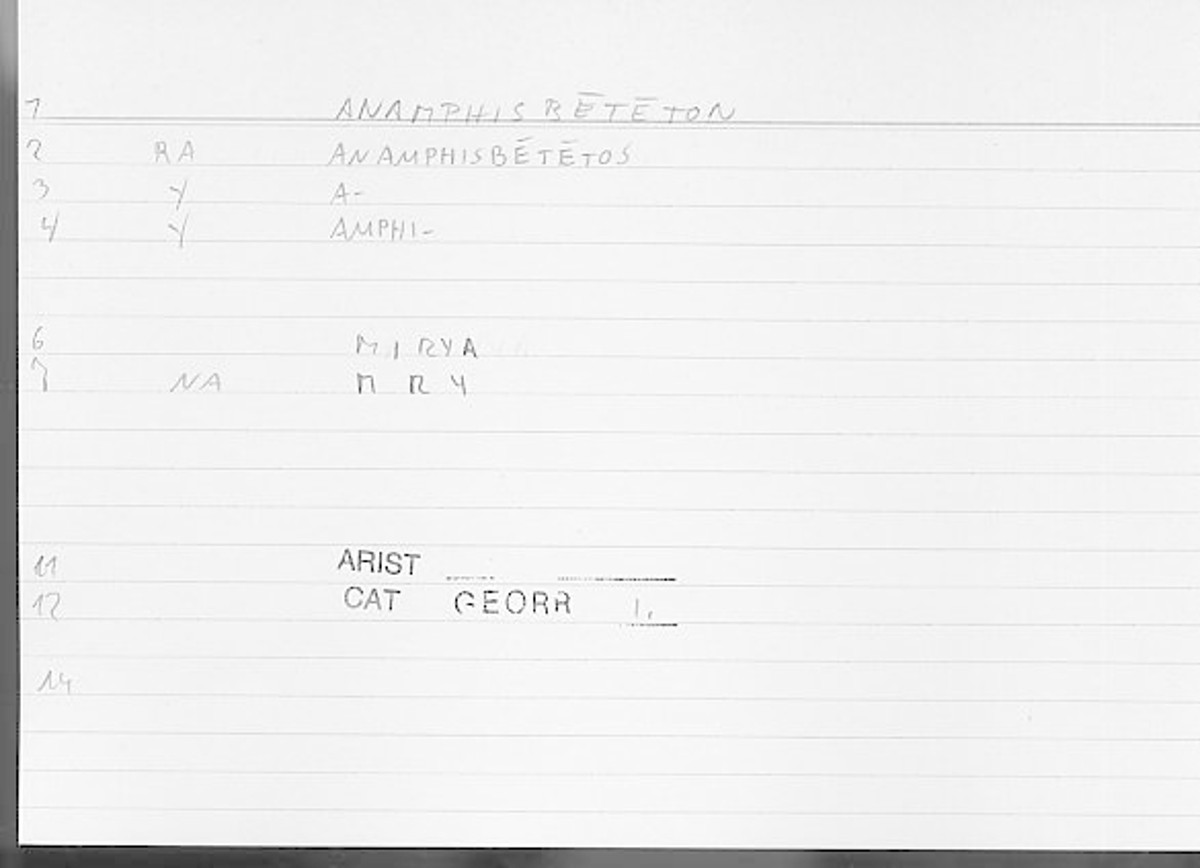 1 ANAMPHISBĒTĒTON
2 RA ANAMPHISBĒTĒTOS
3 Y A-
4 Y AMPHI-
6 MIRYA
7 NA MRY
11 ARIST
12 CAT GEORR 1,
14